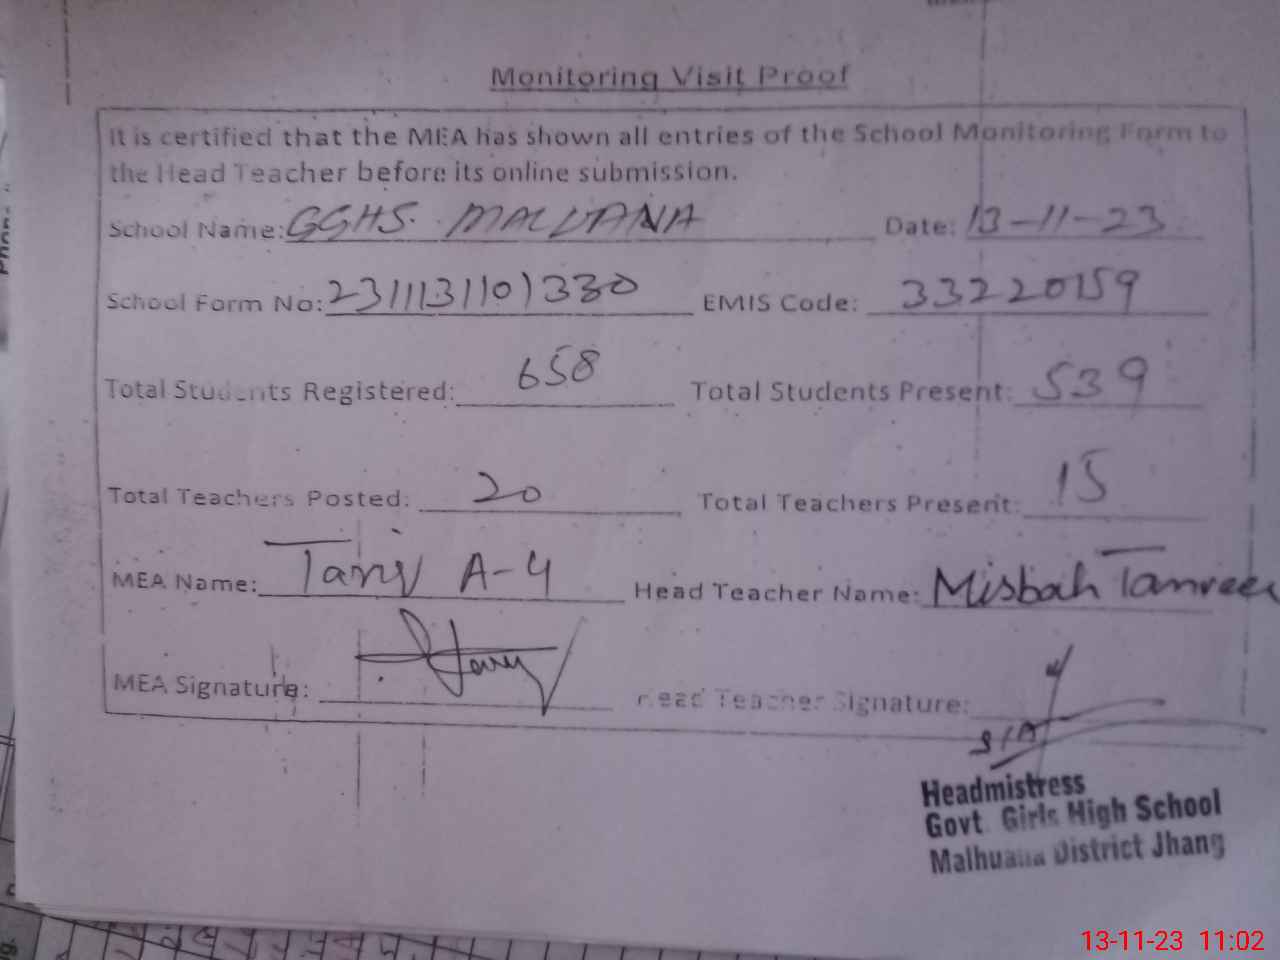 Monitoring Visit Proof
It is certified that the MEA has shown all entries of the School Monitoring Form to
the Head Teacher before its online submission.
School Name: GGHS. MALUANA Date: 13-11-23
School Form No: 2311131101330 EMIS Code: 33220159
Total Students Registered: 658 Total Students Present: 539
Total Teachers Posted: 20 Total Teachers Present: 15
MEA Name: Tariq A-4 Head Teacher Name: Misbah Tanveer
MEA Signature: Head Teacher Signature:
Headmistress
Govt. Girls High School
Malhuana District Jhang
13-11-23 11:02